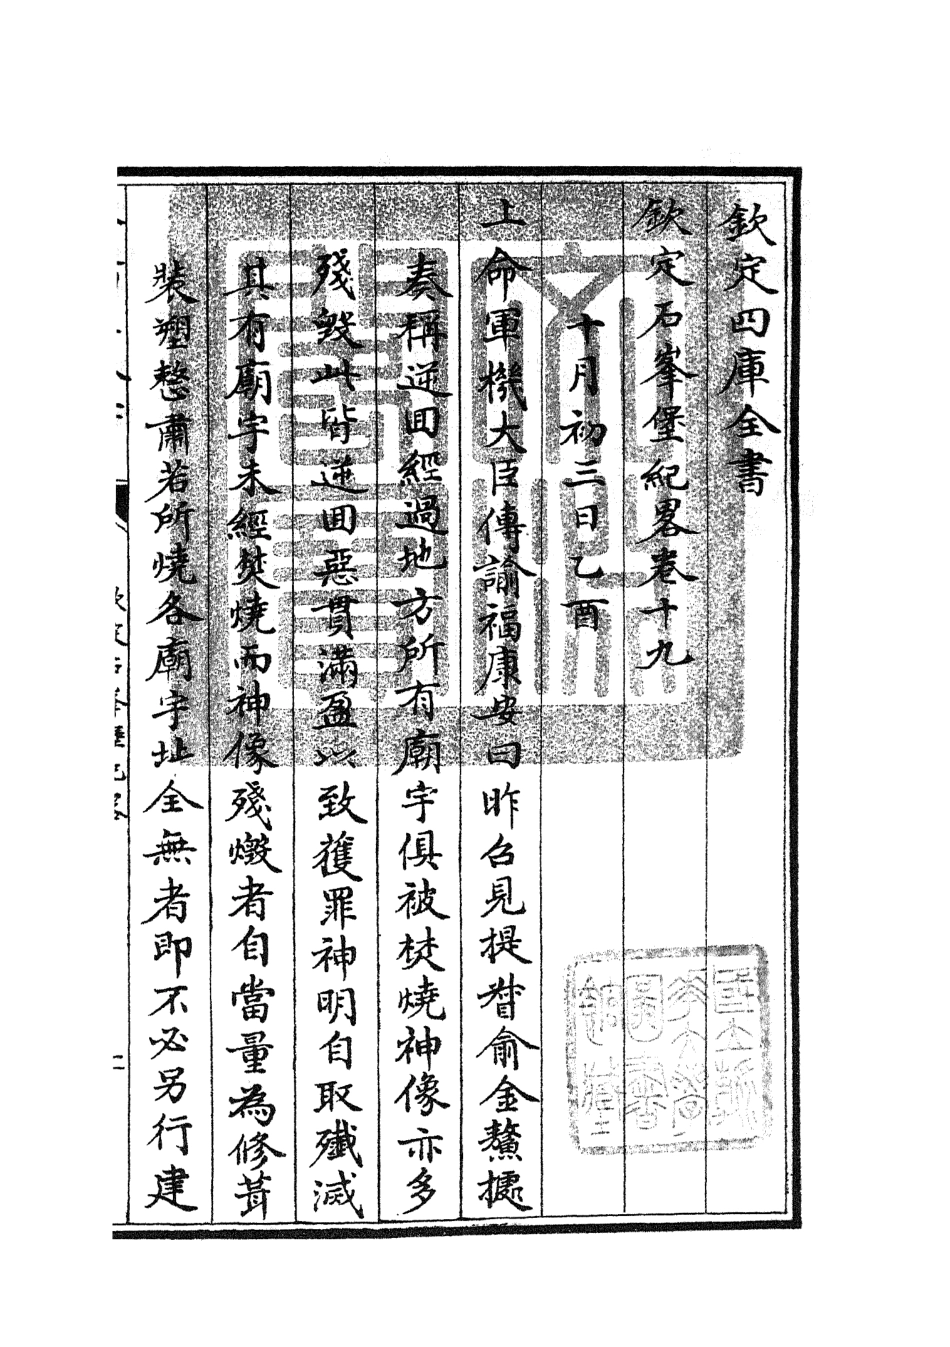 欽定四庫全書
欽定石峯堡紀畧卷十九
十月初三日乙酉
上命軍機大臣傳諭福康安曰昨召見提督俞金鰲據
奏稱逆回經過地方所有廟宇俱被焚燒神像亦多
殘毀此皆逆回惡貫滿盈以致獲罪神明自取殲滅
其有廟宇未經焚燒而神像殘燬者自當量為修葺
裝塑整肅若所燒各廟宇址全無者即不必另行建